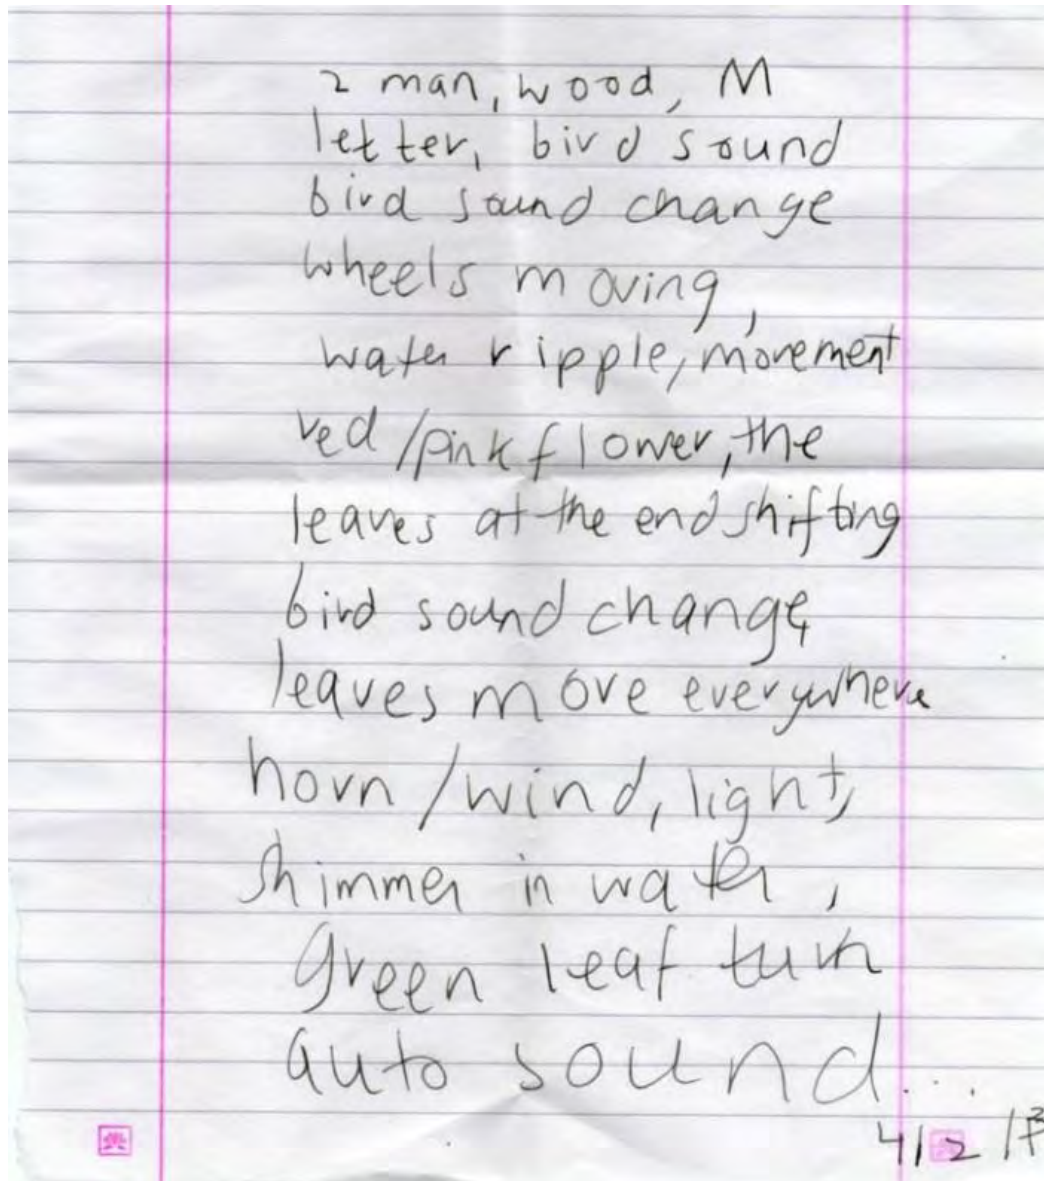 2 man, wood, M
letter, bird sound
bird sound change
wheels moving,
water ripple, movement
red/pink flower, the
leaves at the end shifting
bird sound change,
leaves move everywhere
horn/wind, light,
shimmer in water,
green leaf turn
auto sound...